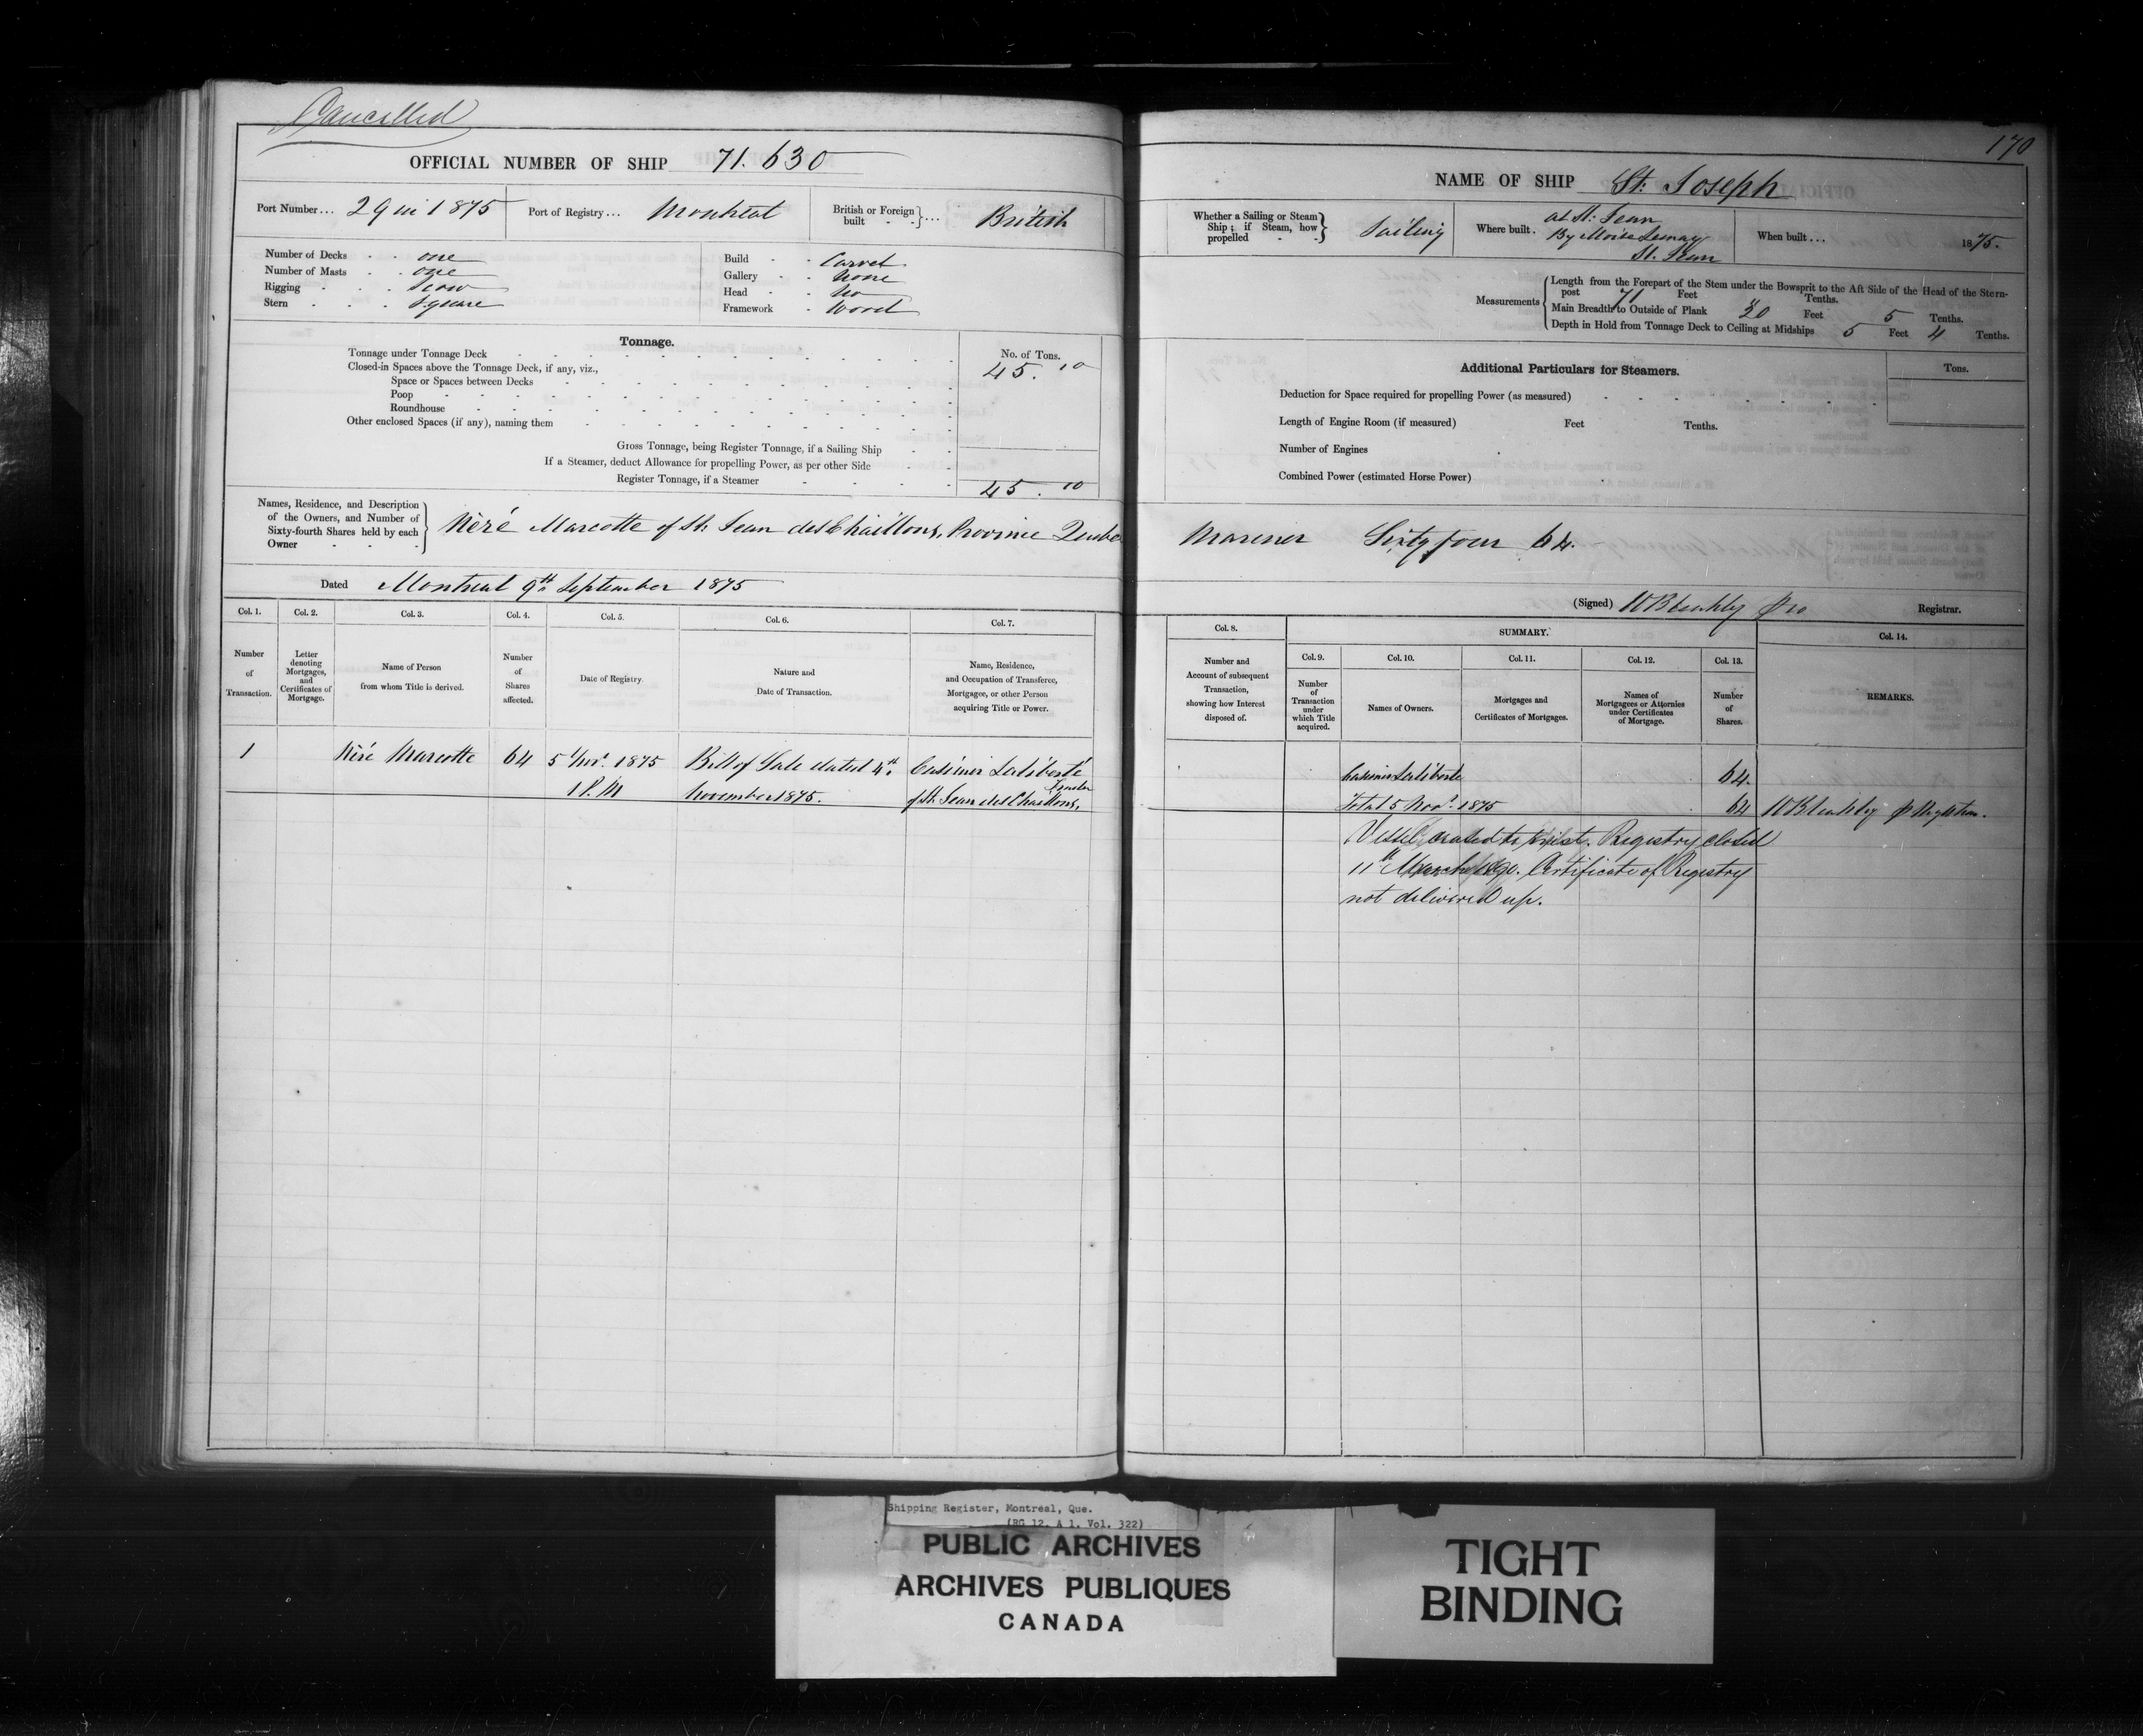 Cancelled
OFFICIAL NUMBER OF SHIP 71.630
Port Number... 29 in 1875 Port of Registry... Montreal British or Foreign built }... British
Number of Decks - - one
Number of Masts - - one
Rigging - - - Scow
Stern - - - Square
Build - - Carvel
Gallery - - None
Head - - No
Framework - Wood
Tonnage.
No. of Tons.
Tonnage under Tonnage Deck 45.10
Closed-in Spaces above the Tonnage Deck, if any, viz.,
Space or Spaces between Decks
Poop
Roundhouse
Other enclosed Spaces (if any), naming them
Gross Tonnage, being Register Tonnage, if a Sailing Ship
If a Steamer, deduct Allowance for propelling Power, as per other Side
Register Tonnage, if a Steamer 45.10
Names, Residence, and Description
of the Owners, and Number of
Sixty-fourth Shares held by each
Owner
Néré Marcotte of St. Jean des Chaillons, Province Quebec
Dated Montreal 9th September 1875
Col. 1. Col. 2. Col. 3. Col. 4. Col. 5. Col. 6. Col. 7.
Number of Transaction.
Letter denoting Mortgages, and Certificates of Mortgage.
Name of Person from whom Title is derived.
Number of Shares affected.
Date of Registry.
Nature and Date of Transaction.
Name, Residence, and Occupation of Transferee, Mortgagee, or other Person acquiring Title or Power.
1 Néré Marcotte 64 5 Nov. 1875 Bill of Sale dated 4th Casimir Laliberté
1 P.M November 1875. of St. Jean des Chaillons,
170
NAME OF SHIP St. Joseph
Whether a Sailing or Steam Ship; if Steam, how propelled } Sailing
Where built. at St. Jean
By Moise Lemay
St. Jean
When built... 1875.
Measurements
Length from the Forepart of the Stem under the Bowsprit to the Aft Side of the Head of the Stern-
post 71 Feet Tenths.
Main Breadth to Outside of Plank 20 Feet 5 Tenths.
Depth in Hold from Tonnage Deck to Ceiling at Midships 5 Feet 4 Tenths.
Additional Particulars for Steamers. Tons.
Deduction for Space required for propelling Power (as measured)
Length of Engine Room (if measured) Feet Tenths.
Number of Engines
Combined Power (estimated Horse Power)
Mariner Sixty four 64.
(Signed) Registrar.
Col. 8. SUMMARY. Col. 14.
Col. 9. Col. 10. Col. 11. Col. 12. Col. 13.
Number and Account of subsequent Transaction, showing how Interest disposed of.
Number of Transaction under which Title acquired.
Names of Owners.
Mortgages and Certificates of Mortgages.
Names of Mortgagees or Attornies under Certificates of Mortgage.
Number of Shares.
REMARKS.
Casimir Laliberté 64.
Total 5 Nov. 1875 64
Vessel ceased to exist. Registry closed
11th March 1890. Certificate of Registry
not delivered up.
Shipping Register, Montréal, Que.
(RG 12, A 1, Vol. 322)
PUBLIC ARCHIVES
ARCHIVES PUBLIQUES
CANADA
TIGHT
BINDING